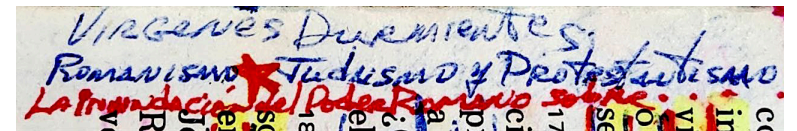 VIRGENES DURMIENTES.
ROMANISMO ★ JUDISMO y PROTESTUTISMO
LA INUNDACIÓN del PODER ROMANO SOBRE. . . .